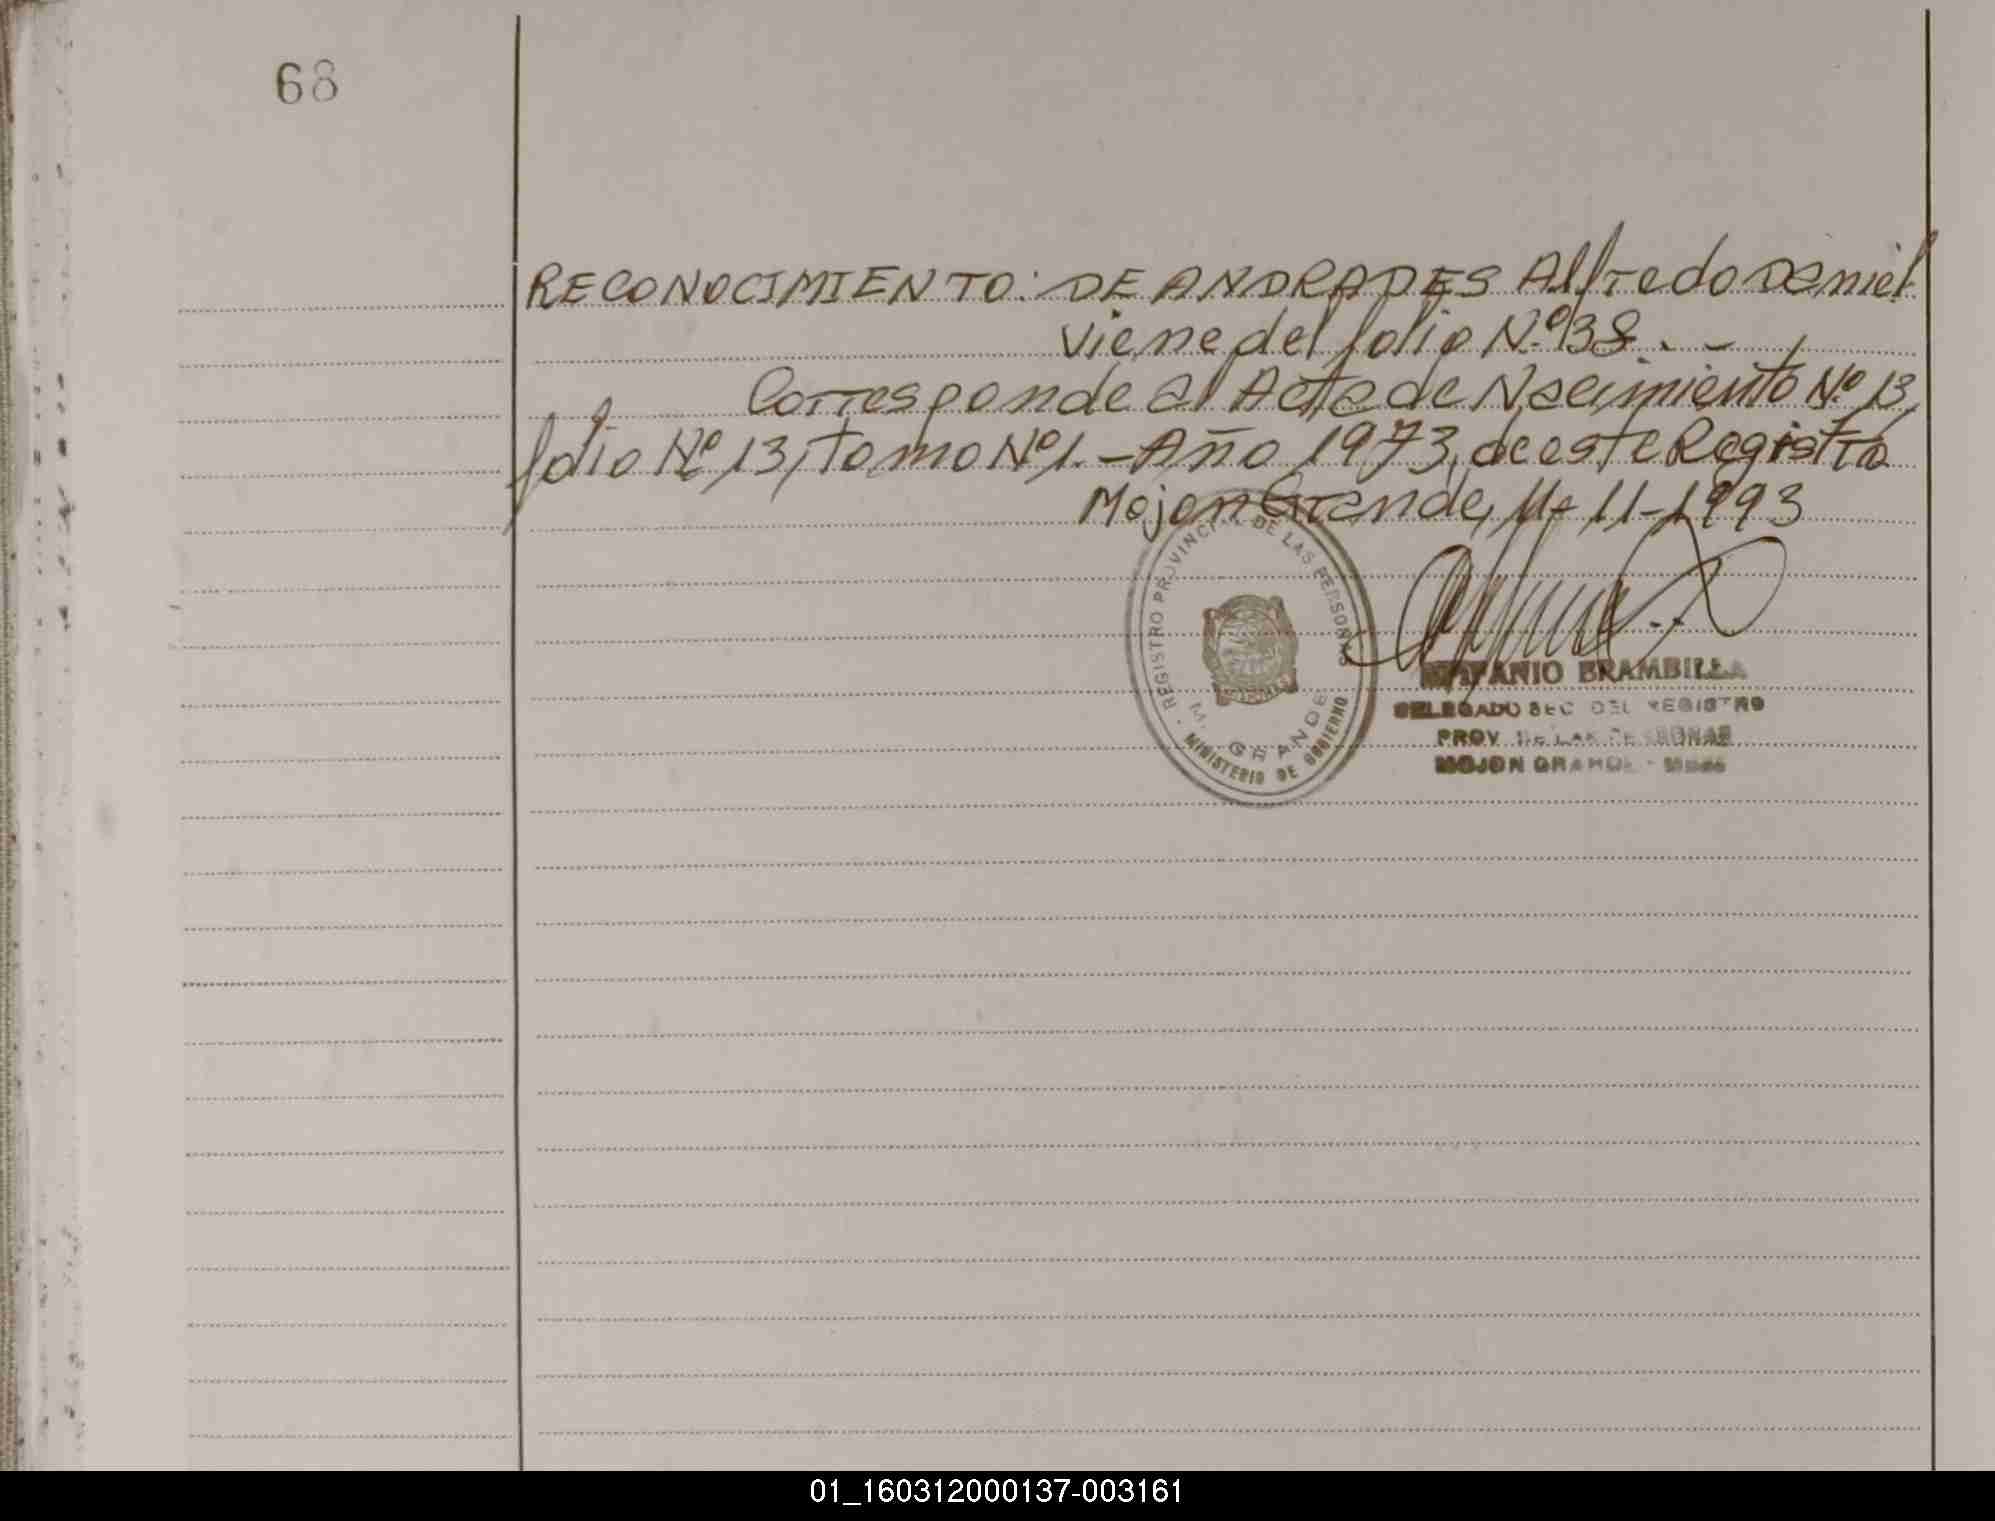 68
RECONOCIMIENTO: DE ANDRADES Alfredo Daniel
Viene del folio Nº 38. - -
Corresponde al Acta de Nacimiento Nº 13,
folio Nº 13, tomo Nº 1. - Año 1973, de este Registro
Mojon Grande, 11-11-1993
REGISTRO PROVINCIAL DE LAS PERSONAS
M. GRANDE
MINISTERIO DE GOBIERNO
BRAMBILLA
DELEGADO SEC. DEL REGISTRO
PROV. DE LAS PERSONAS
MOJON GRANDE -
01_160312000137-003161